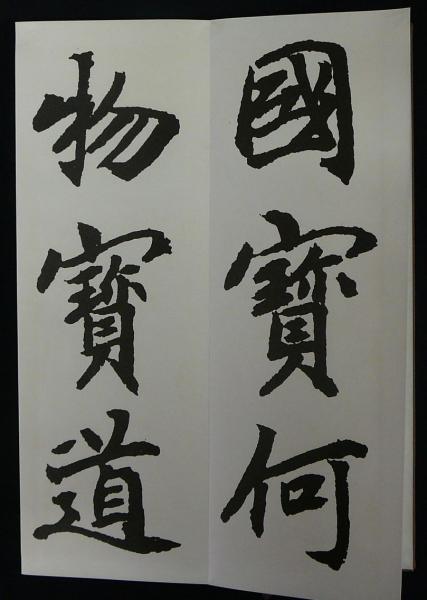 國寶何
物寶道